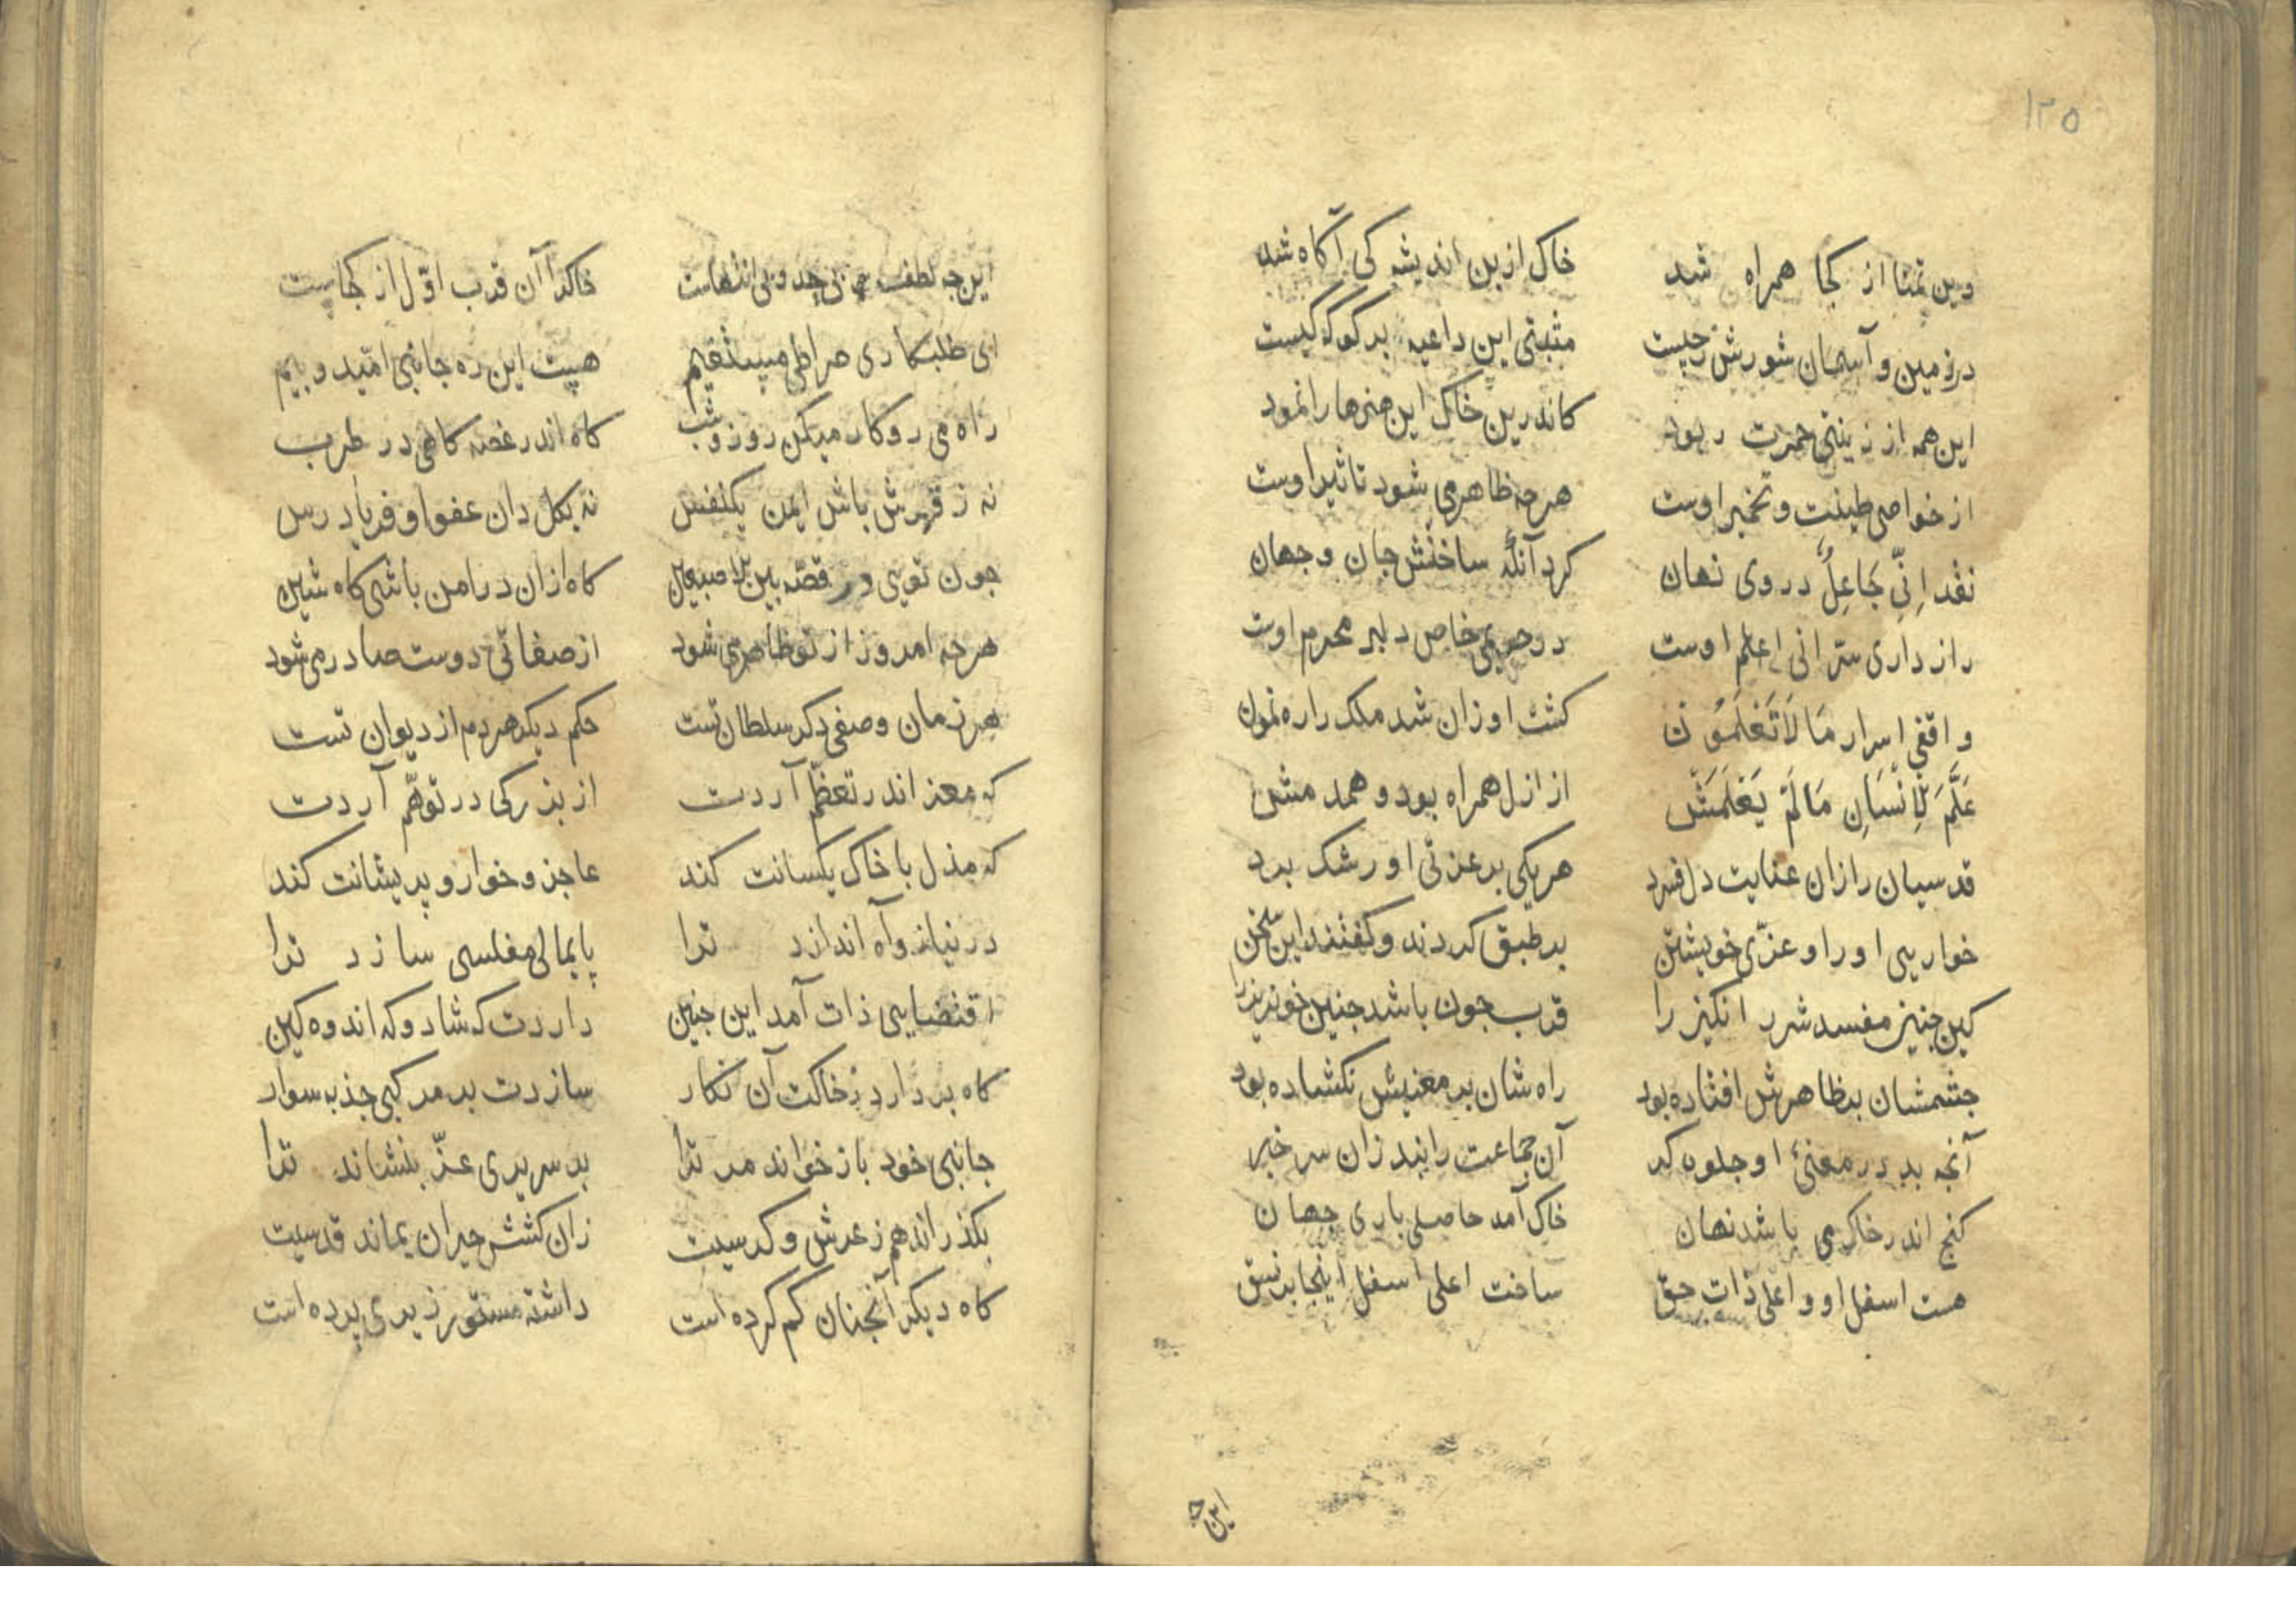 ١٢٥
وین تمنا از کجا همراه شد خاک ازین اندیشه کی آکاه شد
در زمین و آسمان شورش زچیست مثبتی این داعیه برکو که کیست
این همه از زینتی حمرت ربود کاندرین خاک این هنرها را نمود
از خواصی طینت و تخمیر اوست هرجه ظاهر می شود تاثیر اوست
نقد اِنّی جَاعِلٌ در وی نهان کرد آنکه ساختش جان و جهان
راز داری سرّ انی اعلم اوست در حریمی خاص دلبر محرم اوست
واقفی اسرار مَا لَا تَعْلَمُون کشت او زان شد ملک را ره نمون
عَلَّمَ لْاِنْسَانِ مَا لَمْ یَعْلَمَش از ازل همراه بود و همدمش
قدسیان را زان عنایت دل فسرد هریکی بر عزتی او رشک برد
خواریی او را و عزّی خویشتن بر طبق کردند و کفتند این سخن
کین جنین مفسد شر انکیز را قرب جون باشد جنین خونریز را
جشمشان بظاهرش افتاده بود راه شان بر معنیش نکشاده بود
آنجه بد در معنیٔ او جلوه کر آن جماعت را نبد زان سر خبر
کنج اندر خاک می باشد نهان خاک آمد حاصلی باری جهان
هست اسفل او و اعلی ذات حق ساخت اعلی اسفل اینجا بر نسق
این جه
این جه لطف بی حد و بی انتهاست خاکرا آن قرب اوّل از کجاست
ای طلبکاری صراطی مستقیم هست این ره جانبی امّید و بیم
راه می رو کار میکن روز و شب کاه اندر غصه کاهی در طرب
نه ز قهرش باش ایمن یکنفس نه بکل دان عفو او فریاد رس
جون تویی در قصّه بین الاصبعین کاه ازان در امن باشی کاه شین
هرجه امروز از تو ظاهر می شود از صفاتی دوست صادر می شود
هر زمان وصفی دکر سلطان تست حکم دیکر هر دم از دیوان تست
که معز اندر تعظّم آردت از بزرکی در توهّم آردت
که مذل با خاک یکسانت کند عاجز و خوار و پریشانت کند
در نیاز و آه اندازد ترا پایمالی مفلسی سازد ترا
اقتضایی ذات آمد این جنین داردت که شاد و که اندوه کین
کاه بر دارد زخاکت آن نکار سازدت بر مرکبی جذبه سوار
جانبی خود باز خواند مر ترا بر سریری عزّ بنشاند ترا
بکذراند هم ز عرش و کرسیت زان کشش حیران بماند قدسیت
کاه دیکر آنجنان کم کرده است داشته مستور زیری پرده است